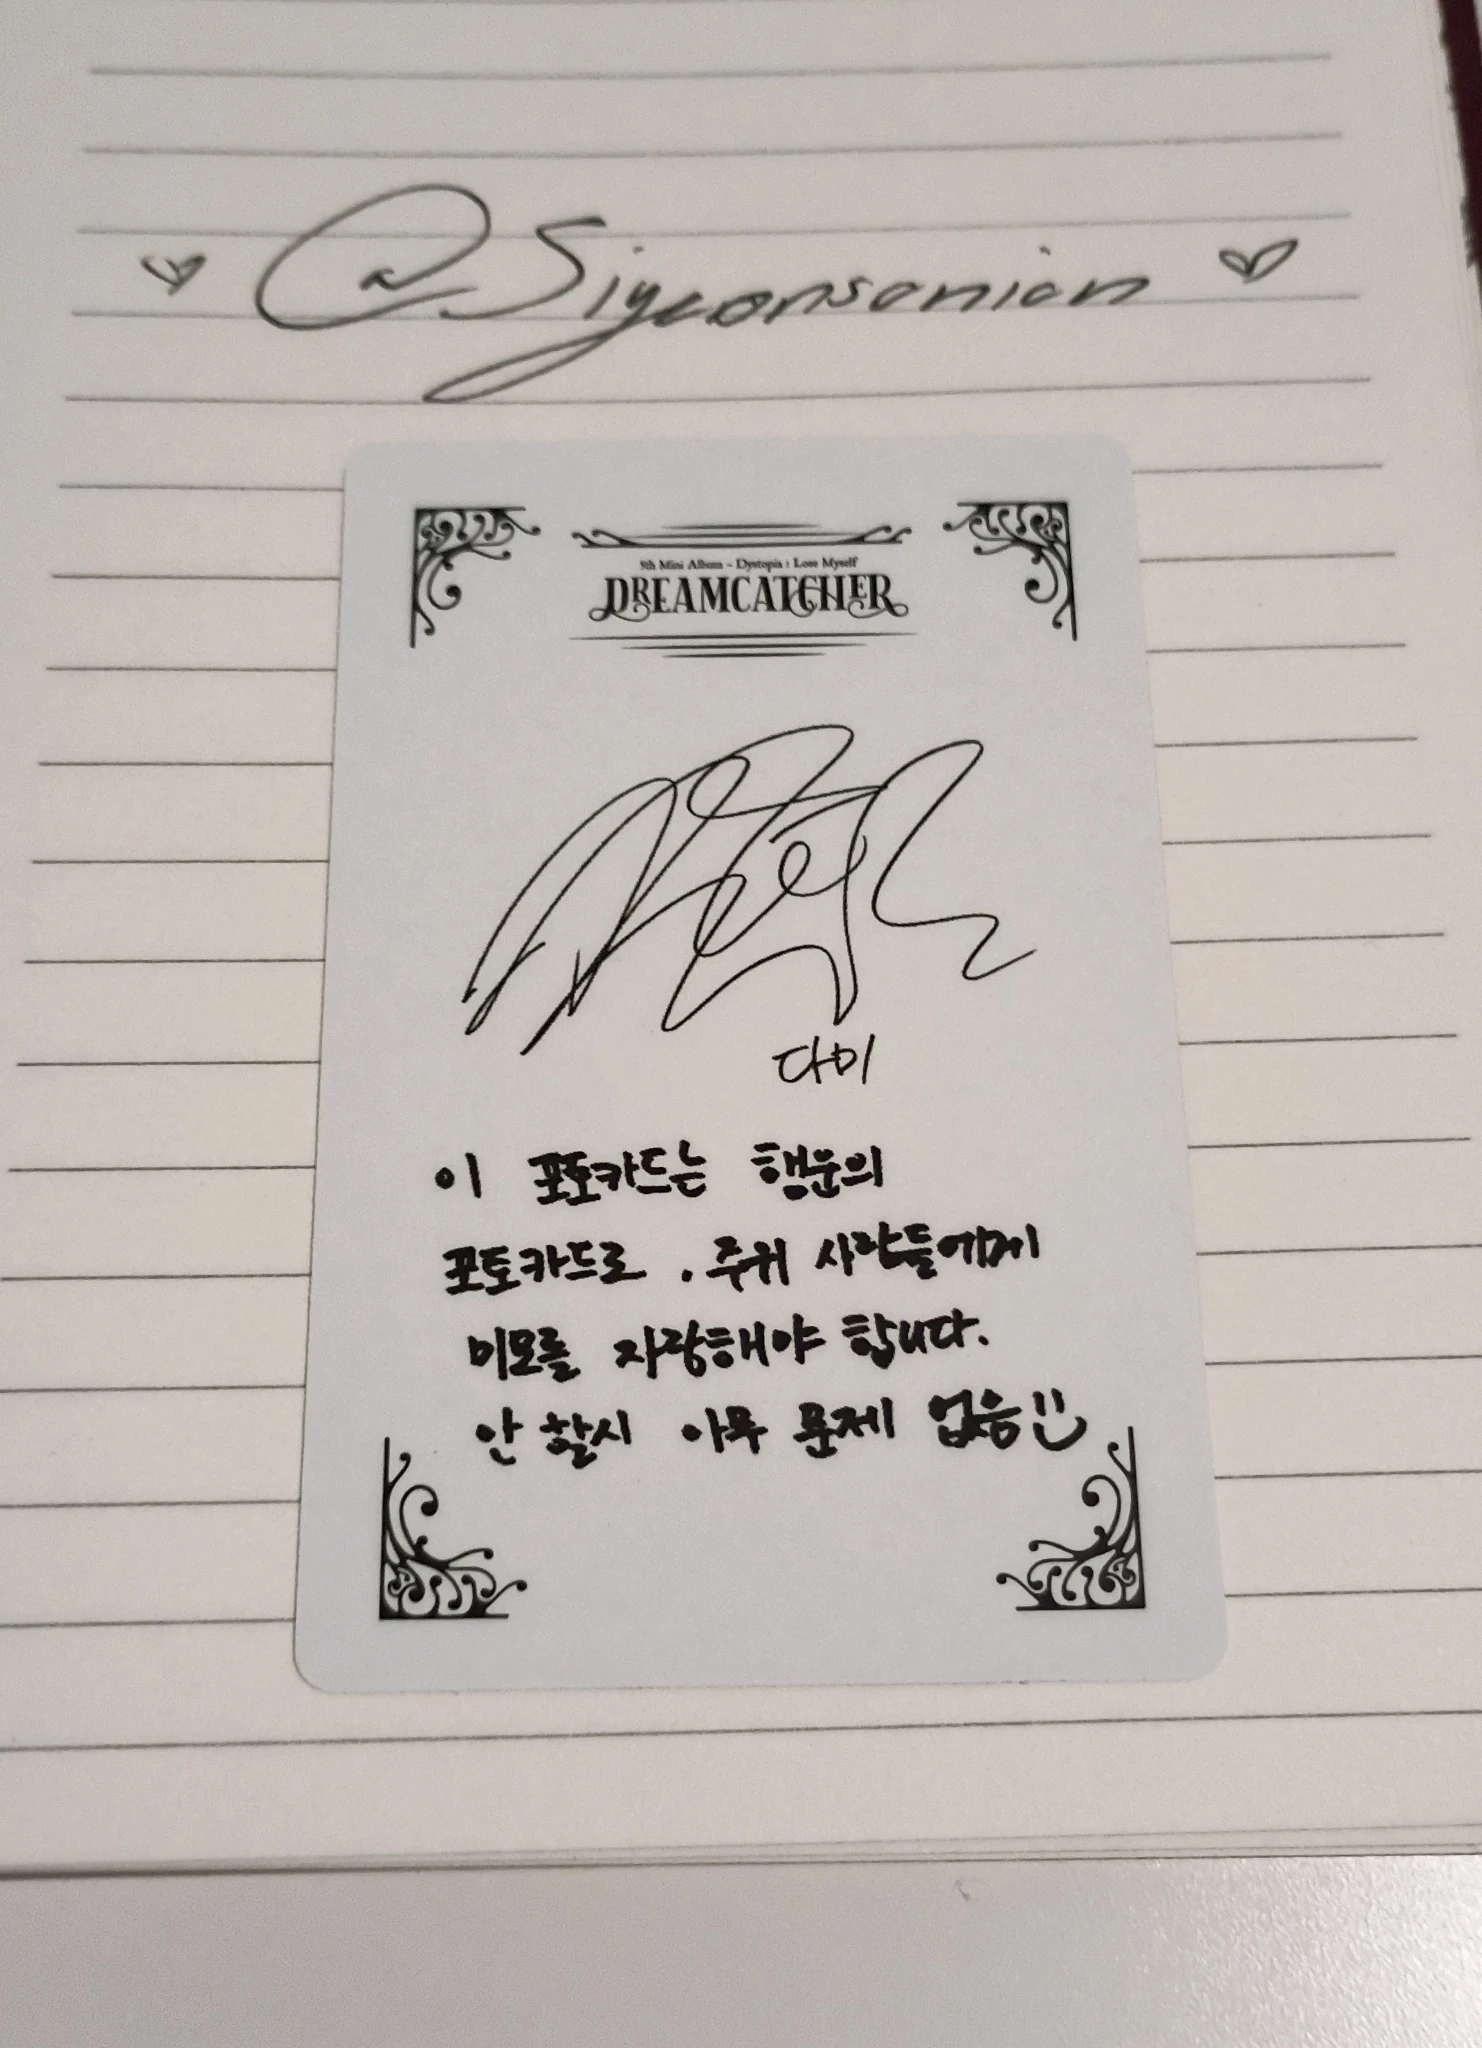 @Siyeonsonian
5th Mini Album - Dystopia : Lose Myself
DREAMCATCHER
다미
이 포토카드는 행운의
포토카드로 . 주위 사람들에게
미모를 자랑해야 합니다.
안 할시 아무 문제 없음